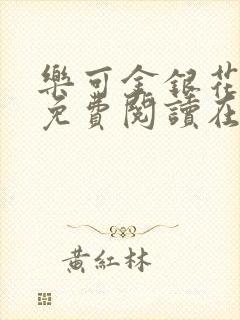 樂可金銀花
免費閱讀在
黃紅林